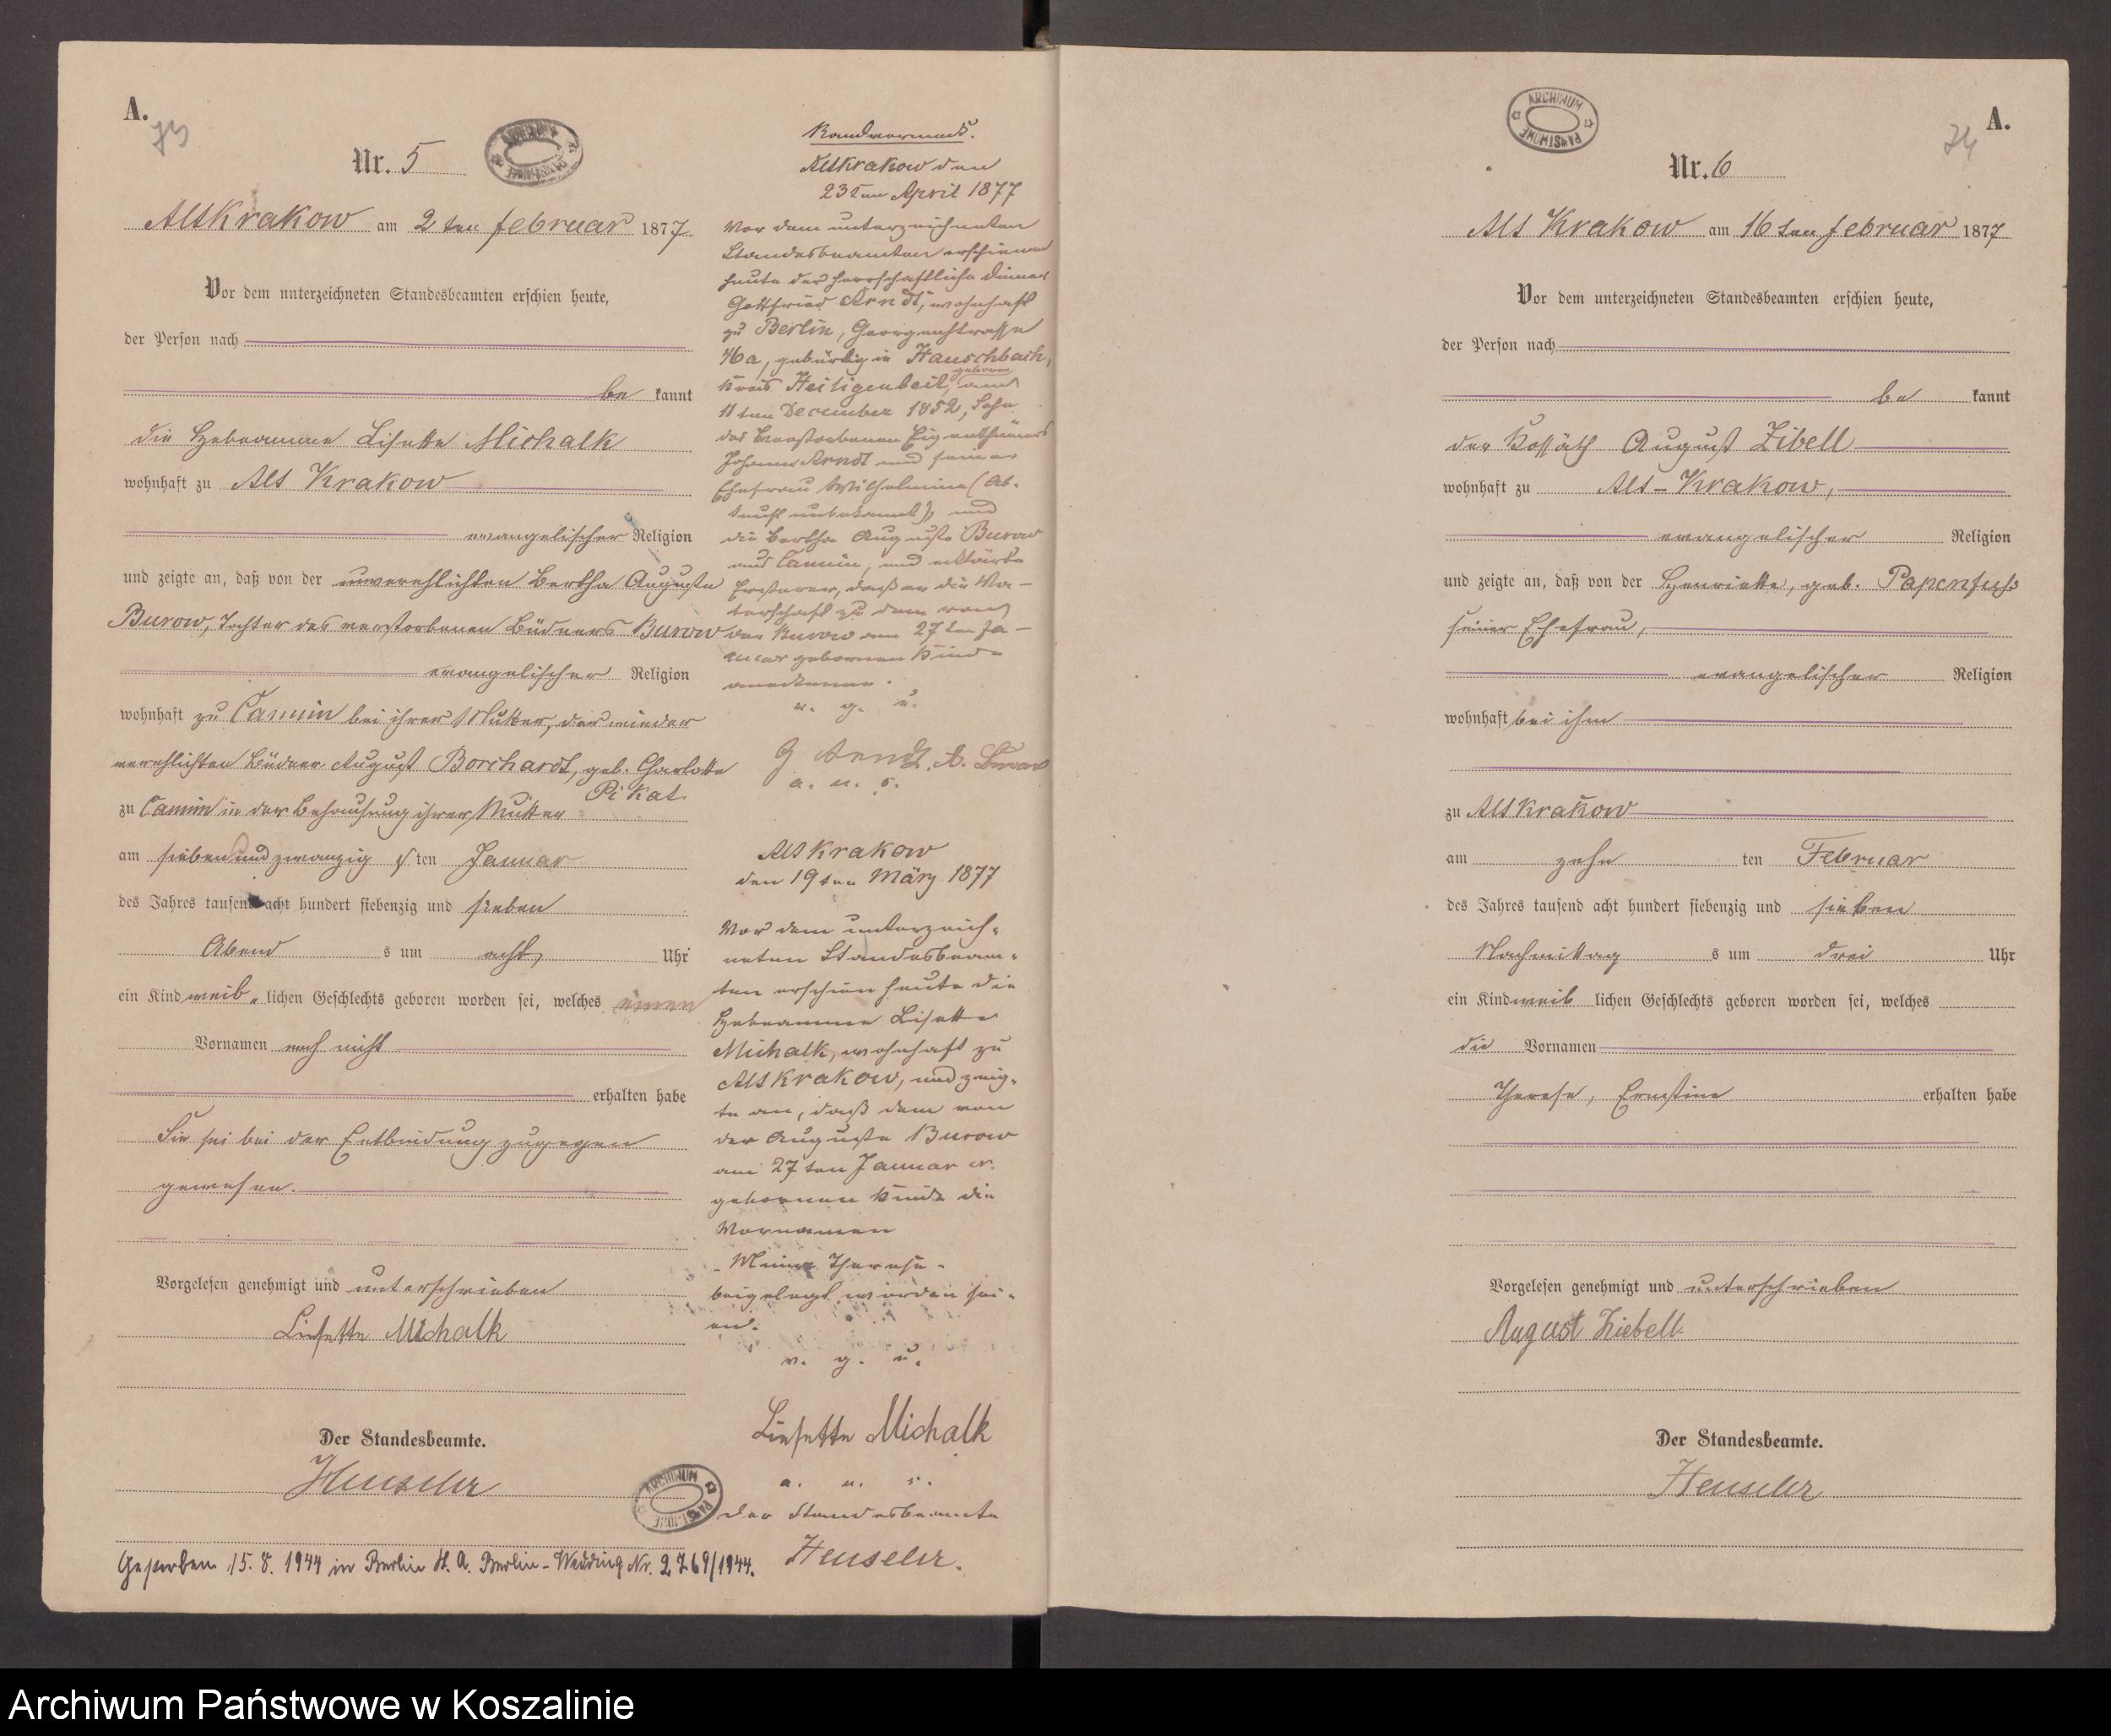 A.
73
Nr. 5
ARCHIWUM PAŃSTWOWE
Alt Krakow am 2ten Februar 1877
Vor dem unterzeichneten Standesbeamten erschien heute,
der Person nach
be kannt
die Hebeamme Lisette Michalk
wohnhaft zu Alt Krakow
evangelischer Religion
und zeigte an, daß von der unverehlichten Bertha Auguste
Burow, Tochter des verstorbenen Büdners Burow
evangelischer Religion
wohnhaft zu Camin bei ihrer Mutter, der wieder
verehlichten Büdner August Borchardt, geb. Charlotte
Pikat
zu Camin in der Behausung ihrer Mutter
am sieben und zwanzig ten Januar
des Jahres tausend acht hundert siebenzig und sieben
Abend s um acht Uhr
ein Kind weib lichen Geschlechts geboren worden sei, welches einen
Vornamen noch nicht
erhalten habe
Sie sei bei der Entbindung zugegen
gewesen.
Vorgelesen genehmigt und unterschrieben
Liesette Michalk
Der Standesbeamte.
Henseler
ARCHIWUM PAŃSTWOWE
Gestorben 15.8.1944 in Berlin St. A. Berlin-Wedding Nr. 2769/1944.
Randvermerk.
Altkrakow den
23ten April 1877
Vor dem unterzeichneten
Standesbeamten erschienen
heute der herrschaftliche Diener
Gottfried Arndt, wohnhaft
zu Berlin, Georgenstrasse
46a, gebürtig in Hauschbach,
Kreis Heiligenbeil, geboren am
11ten December 1852, Sohn
des verstorbenen Eigenthümers
Johann Arndt und seiner
Ehefrau Wilhelmine (Ab-
kunft unbekannt), und
die Bertha Auguste Burow
aus Camin, und erklärte
Ersterer, daß er die Va-
terschaft zu dem von
der Burow am 27ten Ja-
nuar gebornen Kinde
anerkenne.
v. g. u.
G Arndt. A. Burow
a. u. s.
Alt Krakow
den 19ten März 1877
Vor dem unterzeich-
neten Standesbeam-
ten erschien heute die
Hebeamme Lisette
Michalk, wohnhaft zu
Alt Krakow, und zeig-
te an, daß dem von
der Auguste Burow
am 27ten Januar cr.
gebornen Kinde die
Vornamen
- Minna Therese -
beigelegt worden sei-
en.
v. g. u.
Liesette Michalk
a. u. s.
der Standesbeamte
Henseler.
A.
74
ARCHIWUM PAŃSTWOWE
Nr. 6
Alt Krakow am 16ten Februar 1877
Vor dem unterzeichneten Standesbeamten erschien heute,
der Person nach
be kannt
der Kossäth August Zibell
wohnhaft zu Alt-Krakow,
evangelischer Religion
und zeigte an, daß von der Henriette, geb. Papenfuhs
seiner Ehefrau,
evangelischer Religion
wohnhaft bei ihm
zu Alt Krakow
am zehn ten Februar
des Jahres tausend acht hundert siebenzig und sieben
Nachmittag s um drei Uhr
ein Kind weib lichen Geschlechts geboren worden sei, welches
die Vornamen
Therese, Ernstine erhalten habe
Vorgelesen genehmigt und unterschrieben
August Ziebell.
Der Standesbeamte.
Henseler
Archiwum Państwowe w Koszalinie